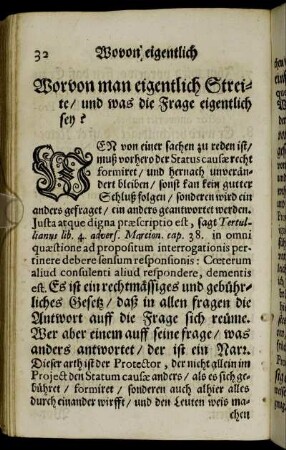 32 Wovon eigentlich
Worvon man eigentlich Strei-
te/ und was die Frage eigentlich
sey?
WEN von einer sachen zu reden ist/
muß vorhero der Status causæ recht
formiret/ und hernach unverän-
dert bleiben/ sonst kan kein gutter
Schluß folgen/ sondern wird ein
anders gefraget/ ein anders geantwortet werden.
Justa atque digna præscriptio est, sagt Tertul-
lianus lib. 4. advers. Martion. cap. 38. in omni
quæstione ad propositum interrogationis per-
tinere debere sensum responsionis: Cœterum
aliud consulenti aliud respondere, dementis
est. Es ist ein rechtmässiges und gebühr-
liches Gesetz/ daß in allen fragen die
Antwort auff die Frage sich reüme.
Wer aber einem auff seine frage/ was
anders antwortet/ der ist ein Narr.
Dieser arth ist der Protector, der nicht allein im
Project den Statum causæ anders/ als es sich ge-
bühret/ formiret/ sonderen auch alhier alles
durch einander wirfft/ und den Leuten weis ma-
chen